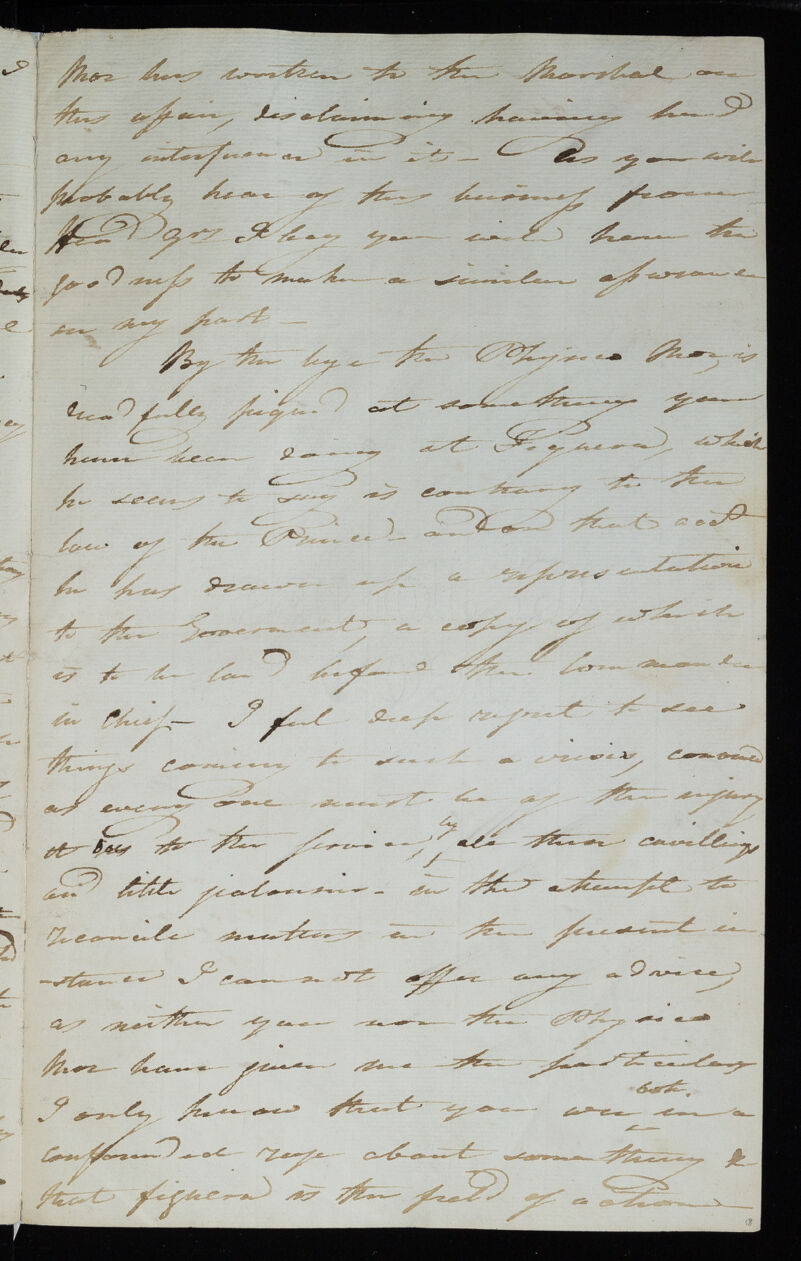 Mor has written to the Marshal on
this affair, disclaiming having had
any interference in it - As you will
probably hear of this business from
Head Qrs I beg you will have the
goodness to make a similar assurance
on my part -
By the bye the Physico Mor, is
dreadfully piqued at something you
have been doing at Figuera, which
he seems to say is contrary to the
law of the Prince - and on that acct
he has drawn up a representation
to the Goverment, a copy of which
is to be laid before the Commander
in Chief - I feel deep regret to see
things coming to such a crisis, convinced
as every one must be of the injury
it does to the service, by all these cavillings
and little jealousies - in the attempt to
reconcile matters in the present in
-stance I cannot offer any advice,
as neither you nor the Physico
Mor have given me the particulars
I only know that you are both in a
confounded rage about something &
that figuera is the field of action